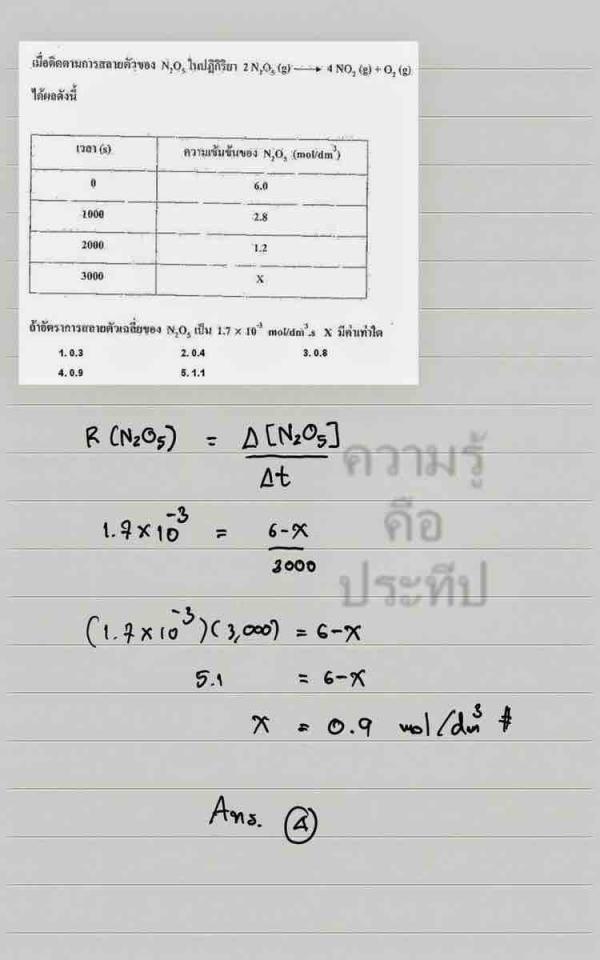 เมื่อติดตามการสลายตัวของ N₂O₅ ในปฏิกิริยา 2 N₂O₅ (g) ⟶ 4 NO₂ (g) + O₂ (g)
ได้ผลดังนี้
เวลา (s) ความเข้มข้นของ N₂O₅ (mol/dm³)
0 6.0
1000 2.8
2000 1.2
3000 X
ถ้าอัตราการสลายตัวเฉลี่ยของ N₂O₅ เป็น 1.7 × 10⁻³ mol/dm³.s X มีค่าเท่าใด
1. 0.3 2. 0.4 3. 0.8
4. 0.9 5. 1.1
R (N₂O₅) = Δ[N₂O₅]
Δt
1.7×10⁻³ = 6-x
3000
(1.7×10⁻³)(3,000) = 6-x
5.1 = 6-x
x = 0.9 mol/dm³ #
Ans. ④
ความรู้
คือ
ประทีป